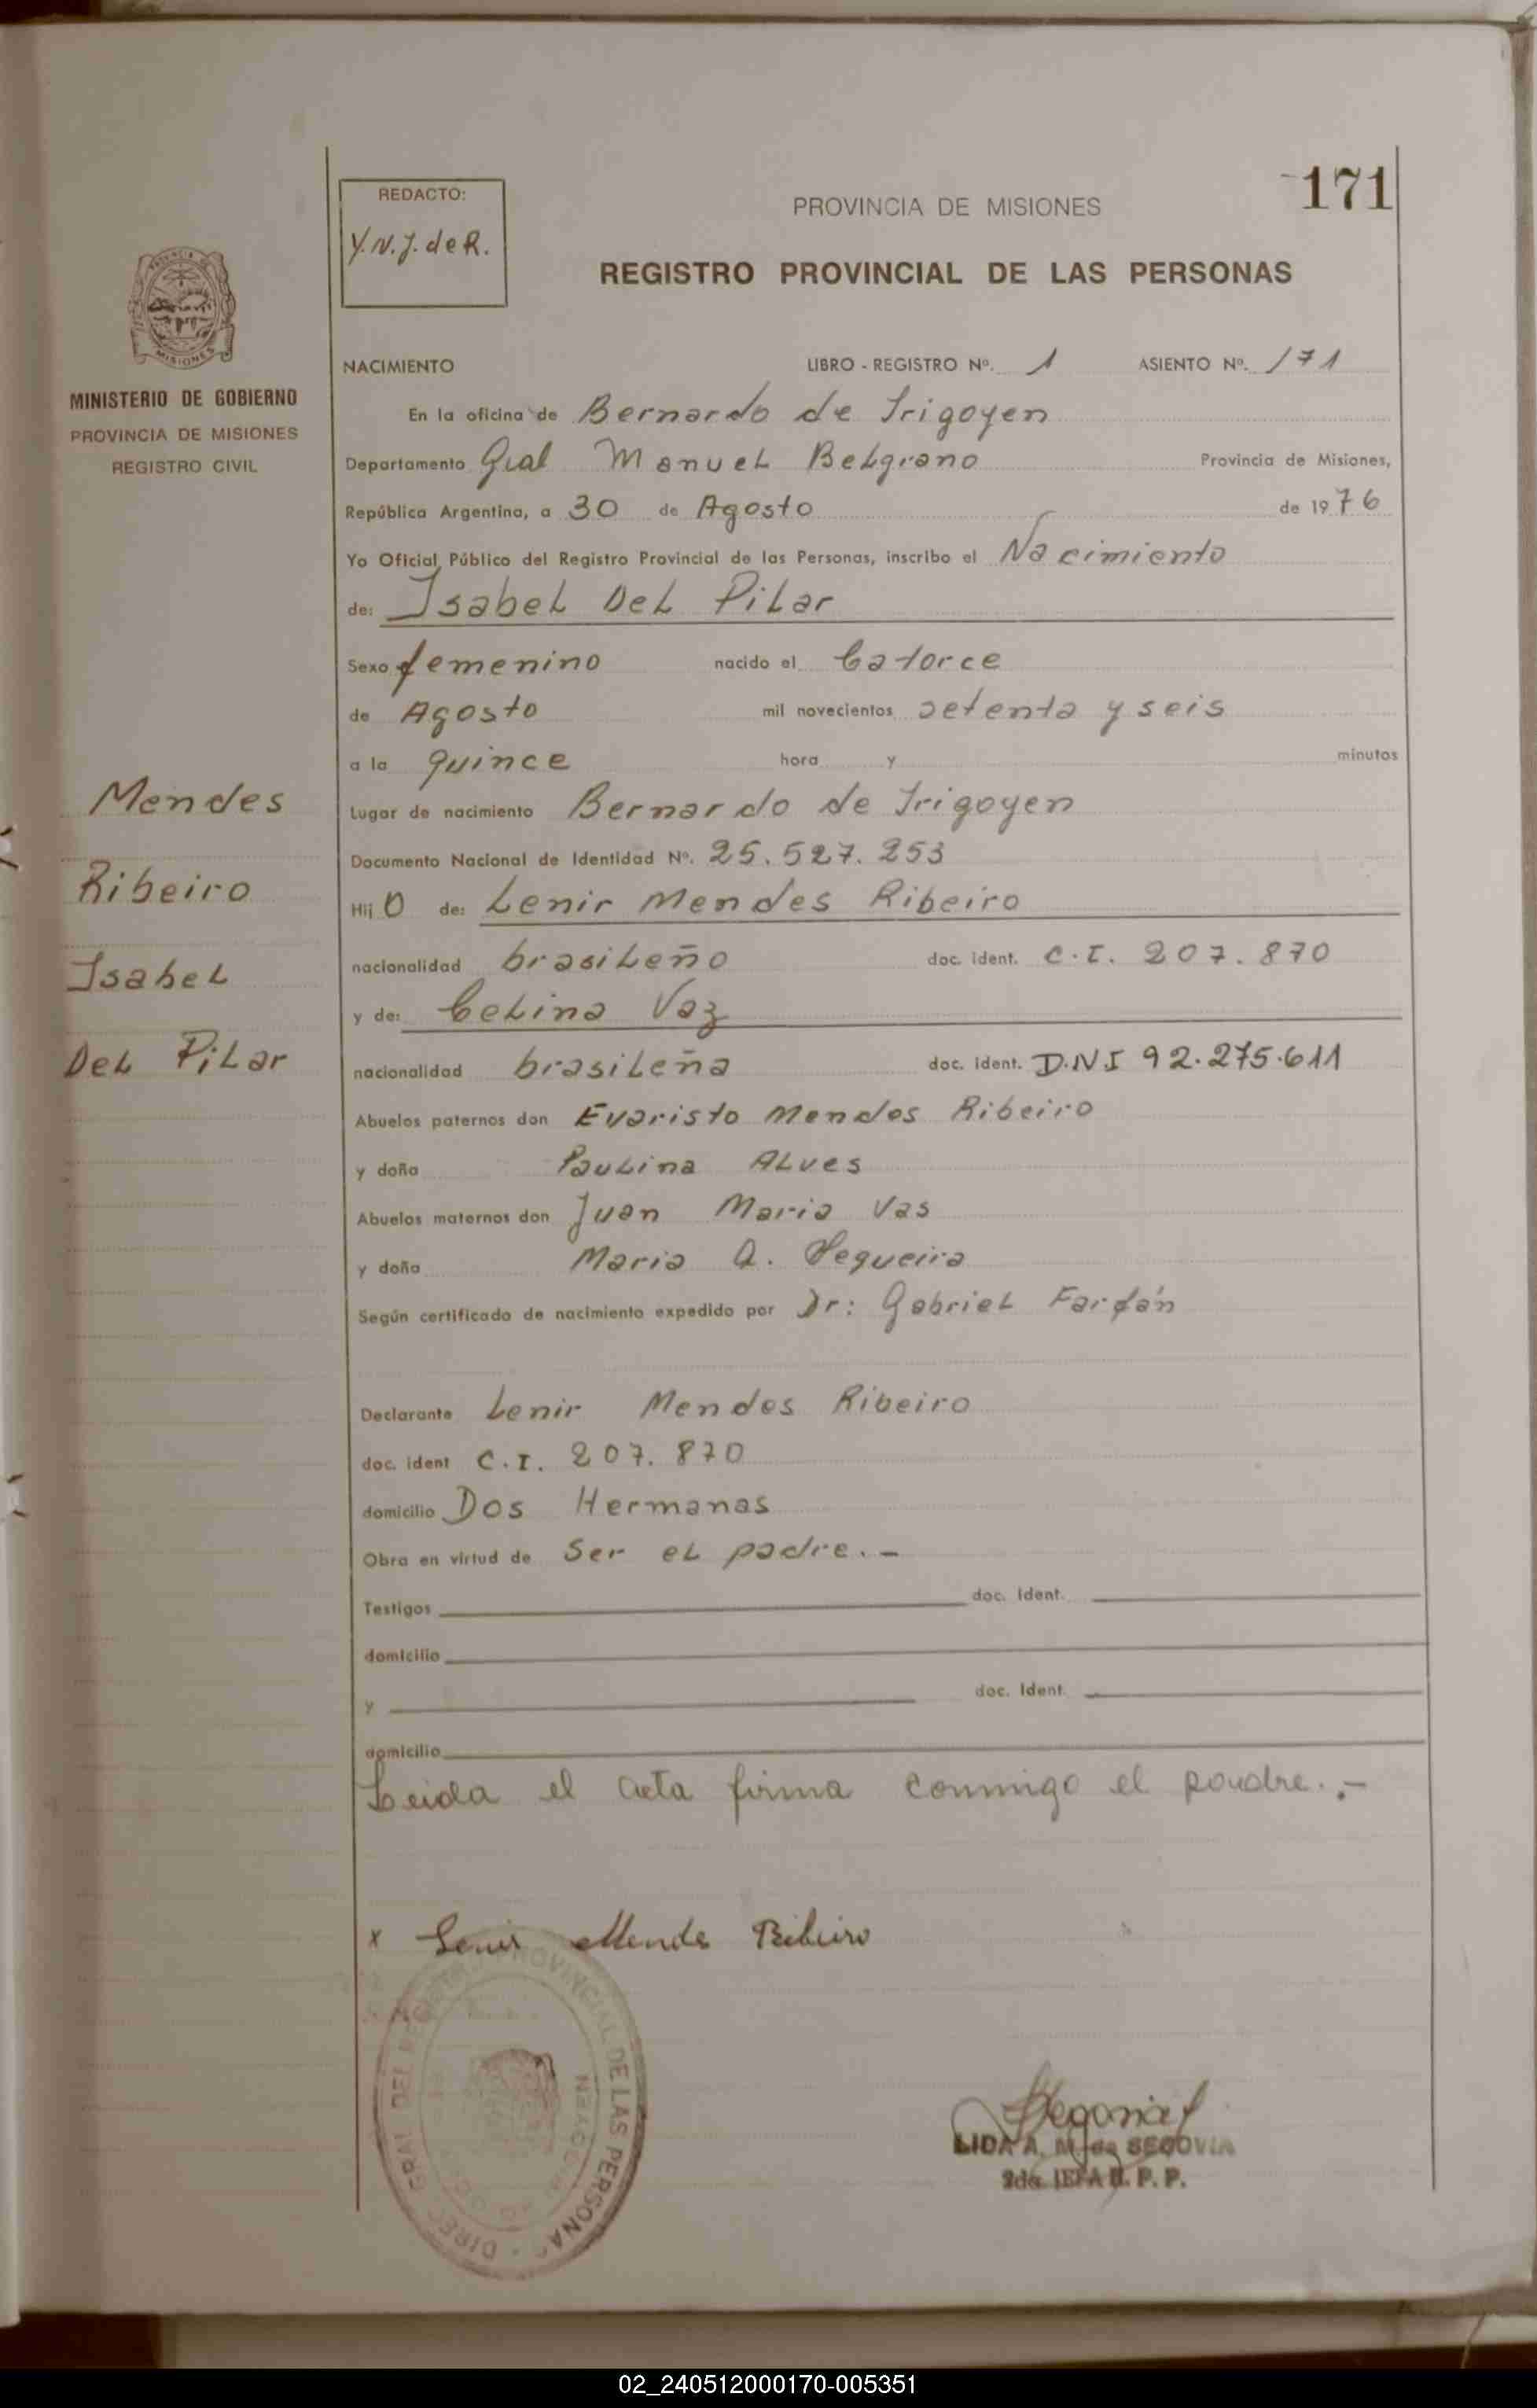 171
REDACTO:
Y.N.J. de R.
PROVINCIA DE MISIONES
REGISTRO PROVINCIAL DE LAS PERSONAS
MISIONES
MINISTERIO DE GOBIERNO
PROVINCIA DE MISIONES
REGISTRO CIVIL
NACIMIENTO LIBRO - REGISTRO Nº. 1 ASIENTO Nº. 171
En la oficina de Bernardo de Irigoyen
Departamento Gral Manuel Belgrano Provincia de Misiones,
República Argentina, a 30 de Agosto de 1976
Yo Oficial Público del Registro Provincial de las Personas, inscribo el Nacimiento
de: Isabel Del Pilar
Sexo femenino nacido el Catorce
de Agosto mil novecientos setenta y seis
a la quince hora y minutos
Mendes
Ribeiro
Isabel
Del Pilar
Lugar de nacimiento Bernardo de Irigoyen
Documento Nacional de Identidad Nº. 25.527.253
Hij O de: Lenir Mendes Ribeiro
nacionalidad brasileño doc. ident. C.I. 207.870
y de: Celina Vaz
nacionalidad brasileña doc. ident. D.N.I 92.275.611
Abuelos paternos don Evaristo Mendes Ribeiro
y doña Paulina Alves
Abuelos maternos don Juan Maria Vas
y doña Maria A. Sequeira
Según certificado de nacimiento expedido por Dr: Gabriel Farfán
Declarante Lenir Mendes Ribeiro
doc. ident C.I. 207.870
domicilio Dos Hermanas
Obra en virtud de Ser el padre.-
Testigos doc. Ident.
domicilio
y doc. Ident.
domicilio
Leida el acta firma conmigo el padre.-
x Lenir Mende Ribeiro
DIREC. GRAL DEL REGISTRO PROVINCIAL DE LAS PERSONAS
Segovia
LIDA A. M. de SEGOVIA
2da. JEFA R. P. P.
02_240512000170-005351